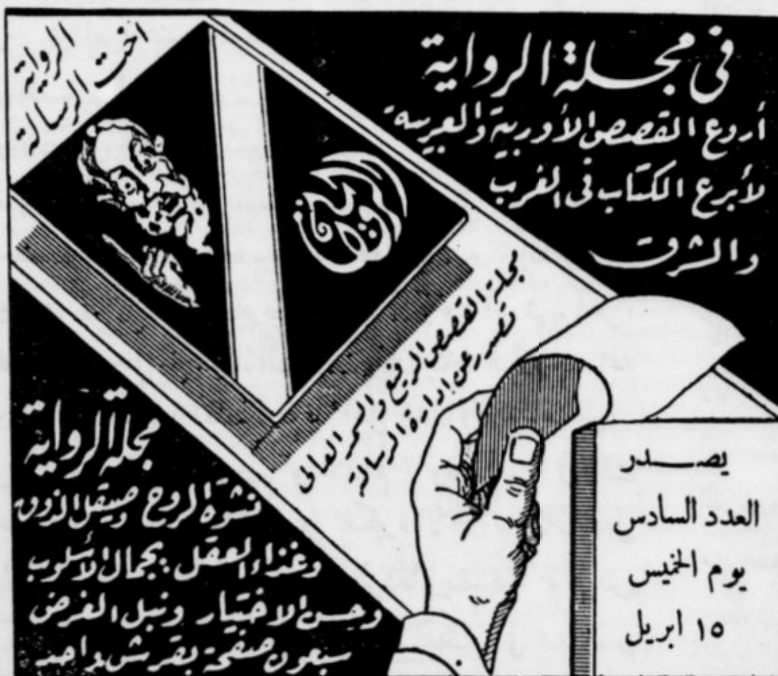 فى مجلة الرواية
أروع القصص الأوربية والعربية
لأبرع الكتاب فى الغرب
والشرق
الرواية
اخت الرسالة
الرواية
مجلة القصص الرفيع والسمر العالى
تصدر عن إدارة الرسالة
مجلة الرواية
نشوة الروح وصيقل الذوق
وغذاء العقل: بجمال الأسلوب
وحسن الاختيار ونبل الغرض
سبعون صفحة بقرش واحد
يصدر
العدد السادس
يوم الخميس
١٥ ابريل